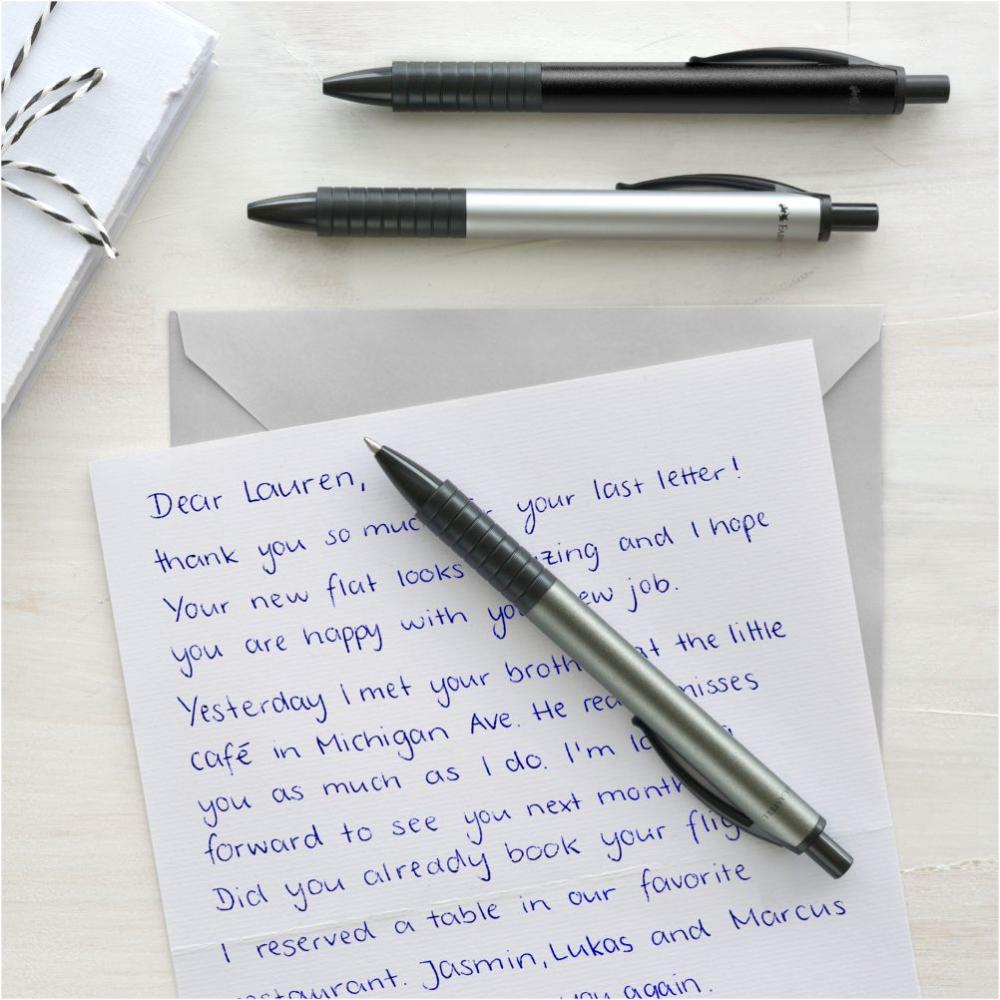 Dear Lauren,
thank you so much your last letter!
Your new flat looks and I hope
you are happy with new job.
Yesterday I met your at the little
café in Michigan Ave. He misses
you as much as I do. I'm
forward to see you next month
Did you already book your
I reserved a table in our favorite
Jasmin, Lukas and Marcus
you again.